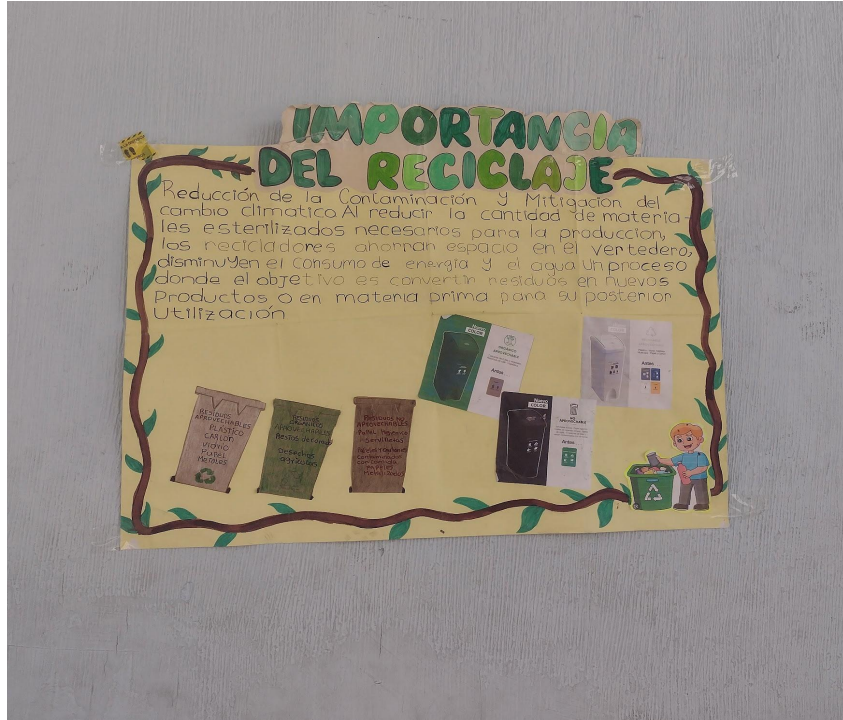 IMPORTANCIA
DEL RECICLAJE
Reducción de la Contaminación y Mitigación del
cambio climatico Al reducir la cantidad de materia-
les esterilizados necesarios para la produccion,
los recicladores ahorran espacio en el vertedero,
disminuyen el consumo de energia y el agua Un proceso
donde el objetivo es convertir residuos en nuevos
Productos o en materia prima para su posterior
Utilización
RESIDUOS
APROVECHABLES
PLASTICO
CARTON
Vidrio
Papel
Metales
Residuos
ORGANICOS
APROVECHABLES
Restos de comida
Desechos
agrizolas
Residuos no
APROVECHABLES
Papel higienico
Servilletas
con comida
papeles
Metalizados
Nuevo
COLOR
ORGANICO
APROVECHABLE
Antes
Antes
Nuevo
COLOR
NO
APROVECHABLE
Antes